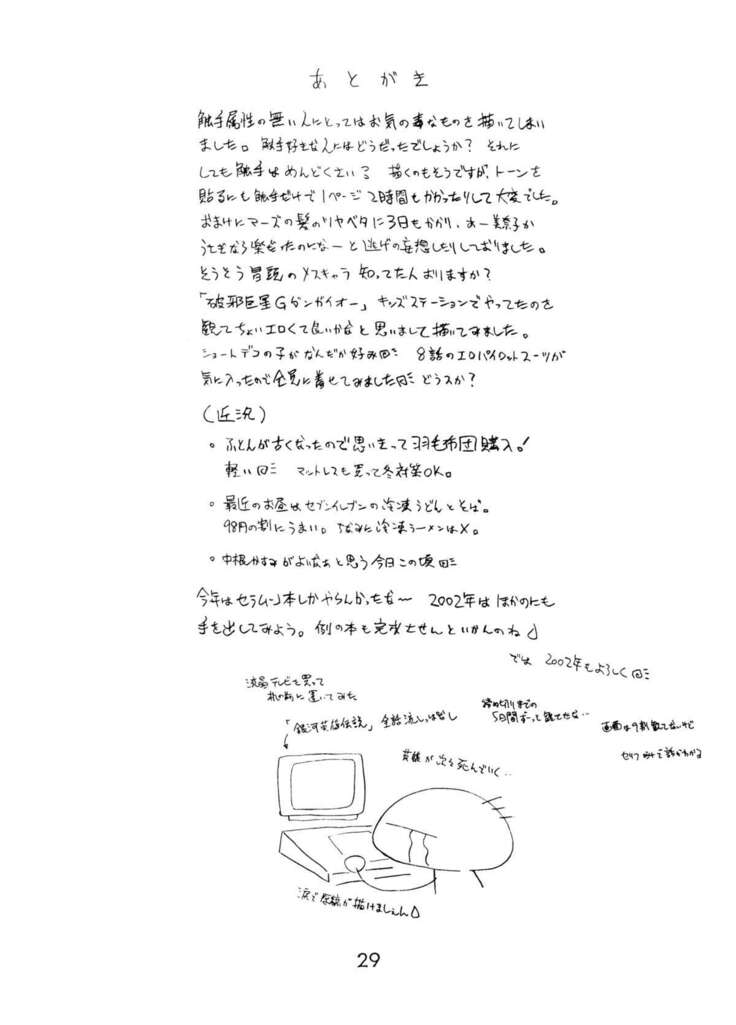 あとがき
触手属性の無い人にとってはお気の毒なものを描いてしまい
ました。触手好きな人にはどうだったでしょうか? それに
しても触手はめんどくさい? 描くのもそうですが、トーンを
貼るにも触手だけで1ページ2時間もかかったりして大変でした。
おまけにマーズの髪のツヤベタに3日もかかり、あー美奈子か
うさぎなら楽だったのになーと逃げの妄想したりしておりました。
そうそう冒頭のメスキャラ知ってた人おりますか?
「破邪巨星Gダンガイオー」キッズステーションでやってたのを
観てちょいエロくて良いかなと思いまして描いてみました。
ショートデコの子がなんだか好み 8話のエロパイロットスーツが
気に入ったので全員に着せてみました どうスか?
(近況)
。ふとんが古くなったので思いきって羽毛布団購入!
軽い マットレスも買って冬対策OK。
。最近のお昼はセブンイレブンの冷凍うどんとそば。
98円の割にうまい。ちなみに冷凍ラーメンは×。
。中根かすみがよいなぁと思う今日この頃
今年はセラムン本しかやらんかったな〜 2002年はほかのにも
手を出してみよう。例の本も完成させんといかんのね♪
では 2002年もよろしく
液晶テレビを買って
机の前に置いてみた
「銀河英雄伝説」全話流しっぱなし
締め切りまでの
5日間ずーっと観てたな..
画面は9割観てないけど
セリフだけで話がわかる
英雄が次々死んでいく..
涙で原稿が描けましぇん
29